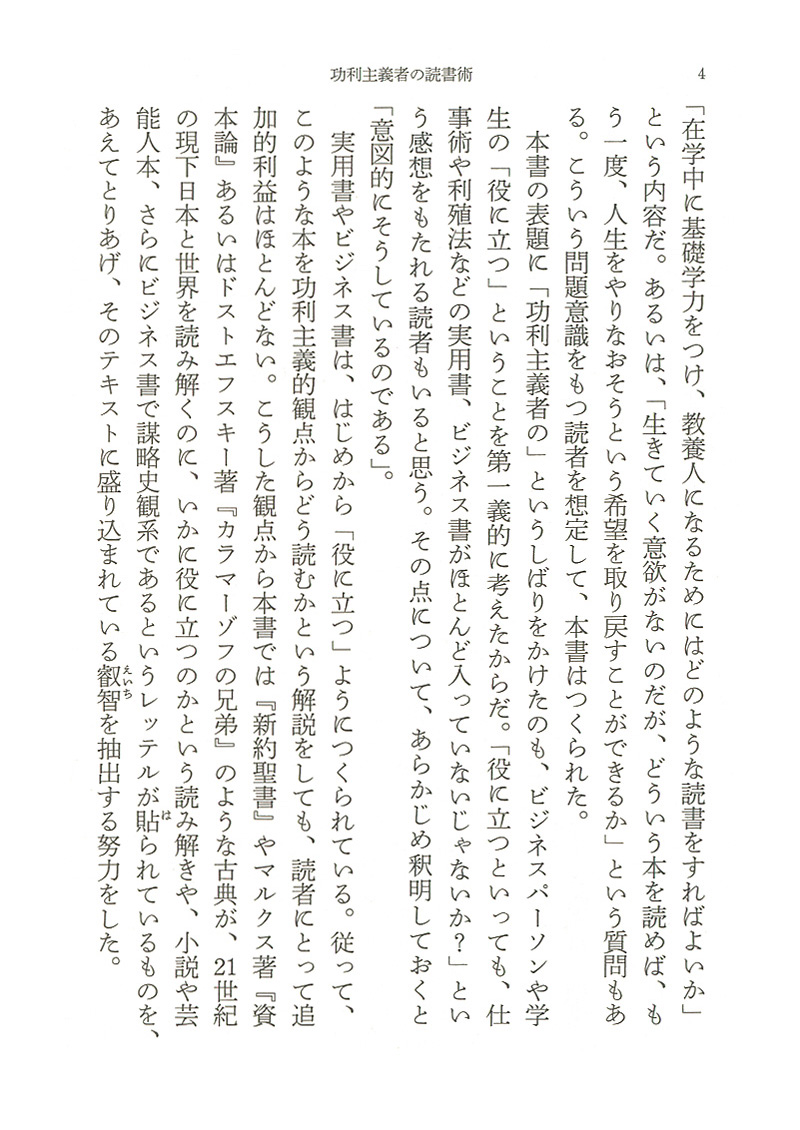 功利主義者の読書術
4
「在学中に基礎学力をつけ、教養人になるためにはどのような読書をすればよいか」
という内容だ。あるいは、「生きていく意欲がないのだが、どういう本を読めば、も
う一度、人生をやりなおそうという希望を取り戻すことができるか」という質問もあ
る。こういう問題意識をもつ読者を想定して、本書はつくられた。
本書の表題に「功利主義者の」というしばりをかけたのも、ビジネスパーソンや学
生の「役に立つ」ということを第一義的に考えたからだ。「役に立つといっても、仕
事術や利殖法などの実用書、ビジネス書がほとんど入っていないじゃないか？」とい
う感想をもたれる読者もいると思う。その点について、あらかじめ釈明しておくと
「意図的にそうしているのである」。
実用書やビジネス書は、はじめから「役に立つ」ようにつくられている。従って、
このような本を功利主義的観点からどう読むかという解説をしても、読者にとって追
加的利益はほとんどない。こうした観点から本書では『新約聖書』やマルクス著『資
本論』あるいはドストエフスキー著『カラマーゾフの兄弟』のような古典が、21世紀
の現下日本と世界を読み解くのに、いかに役に立つのかという読み解きや、小説や芸
能人本、さらにビジネス書で謀略史観系であるというレッテルが貼られているものを、
は
あえてとりあげ、そのテキストに盛り込まれている叡智を抽出する努力をした。
えいち